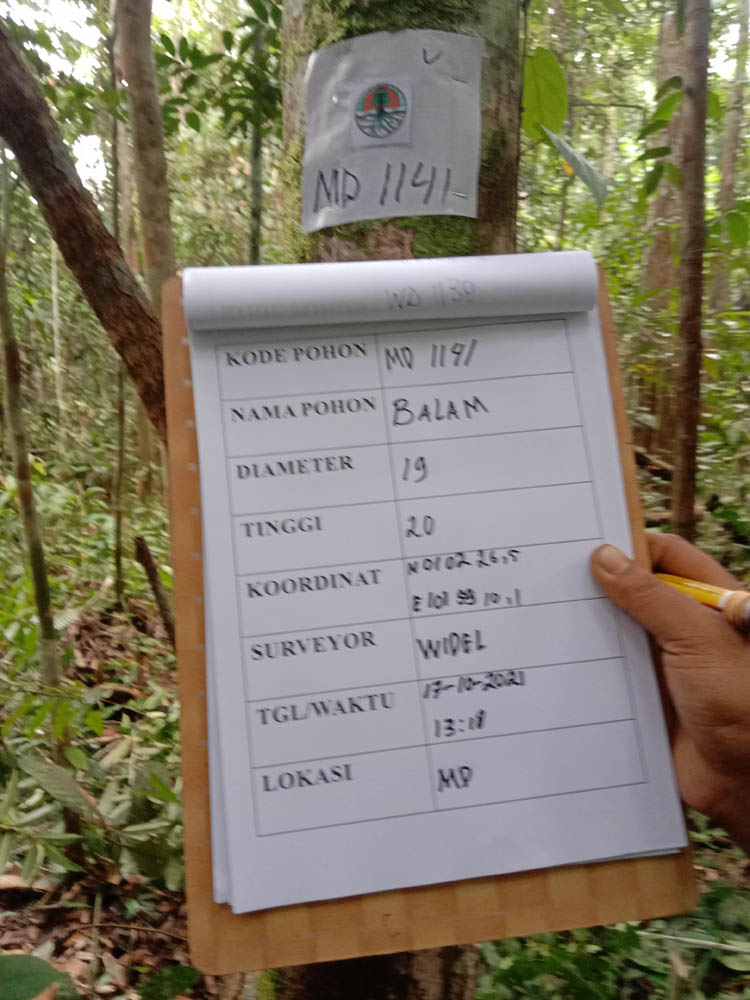 MD 1141
WD 1138
KODE POHON MD 1141
NAMA POHON BALAM
DIAMETER 19
TINGGI 20
KOORDINAT N 01 02 26,5
E 101 59 10,1
SURVEYOR WIDEL
TGL/WAKTU 17-10-2021
13:18
LOKASI MD